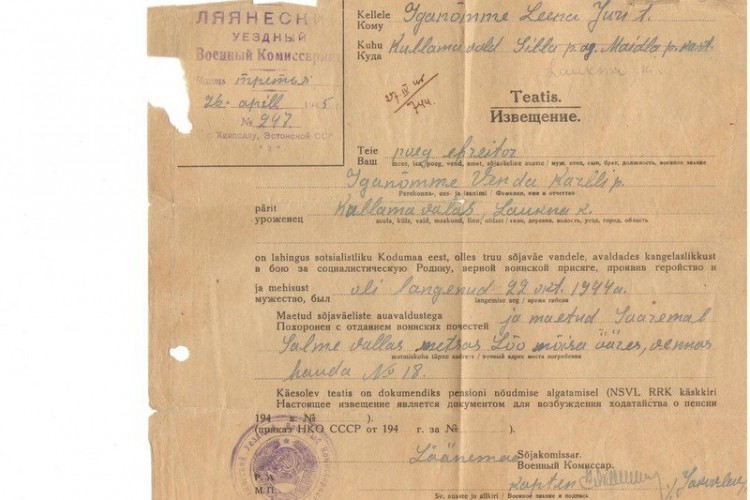 ЛЯЯНЕСКИЙ
УЕЗДНЫЙ
Военный Комиссариат
Часть третья
26 april 1945
№ 247
г. Хаапсалу, Эстонской ССР
Kellele Iganõmme Leena Juri t.
Кому
Kuhu Kullama vald Silla pag. Maidla p. kast.
Куда
Laukna k.
27 IV 45
744
Teatis.
Извещение.
Teie poeg efreitor
Ваш
mees, isa, poeg, vend, amet, sõjaväeline auaste / муж, отец, сын, брат, должность, военное звание
Iganõmme Venda Karli p.
Perekonna-, ees- ja isanimi / Фамилия, имя и отчество
pärit Kullama vallas, Laukna k.
уроженец
asula, küla, vald, maakond, linn, oblast / село, деревня, волость, уезд, город, область
on lahingus sotsialistliku Kodumaa eest, olles truu sõjaväe vandele, avaldades kangelaslikkust
в бою за социалистическую Родину, верной воинской присяге, проявив геройство и
ja mehisust oli langenud 22 okt. 1944 a.
мужество, был
langemise aeg / время гибели
Maetud sõjaväeliste auavaldustega ja maetud Saaremal
Похоронен с отданием воинских почестей
Salme vallas metsas Lõo mõisa ääres, vennas
matmiskoha täpne aadress / точный адрес места погребения
hauda № 18.
Käesolev teatis on dokumendiks pensioni nõudmise algatamisel (NSVL RRK käskkiri
Настоящее извещение является документом для возбуждения ходатайства о пенсии
194 a. № ).
(приказ НКО СССР от 194 г. за № ).
Läänemaa Sõjakomissar.
Военный Комиссар.
kapten
P. K.
М. П.
Sv. auaste ja allkiri / Военное звание и подпись